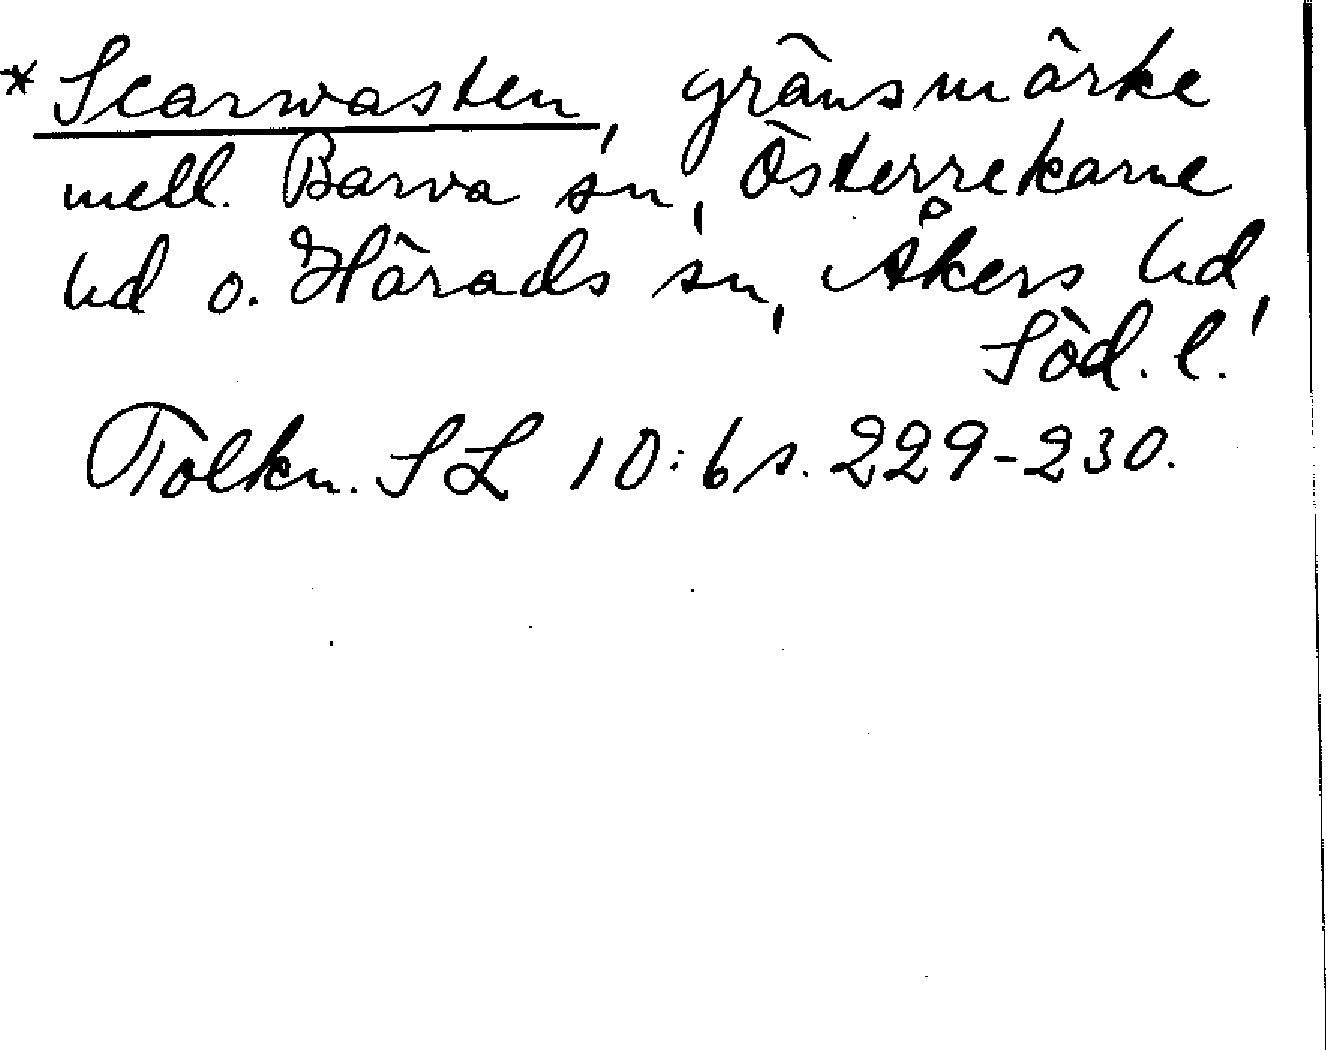 *Scarwasten, gränsmärke
mell. Barva sn, Österrekarne
hd o. Härads sn, Åkers hd,
Söd. l.
Tolkn. SL 10:6 s. 229-230.